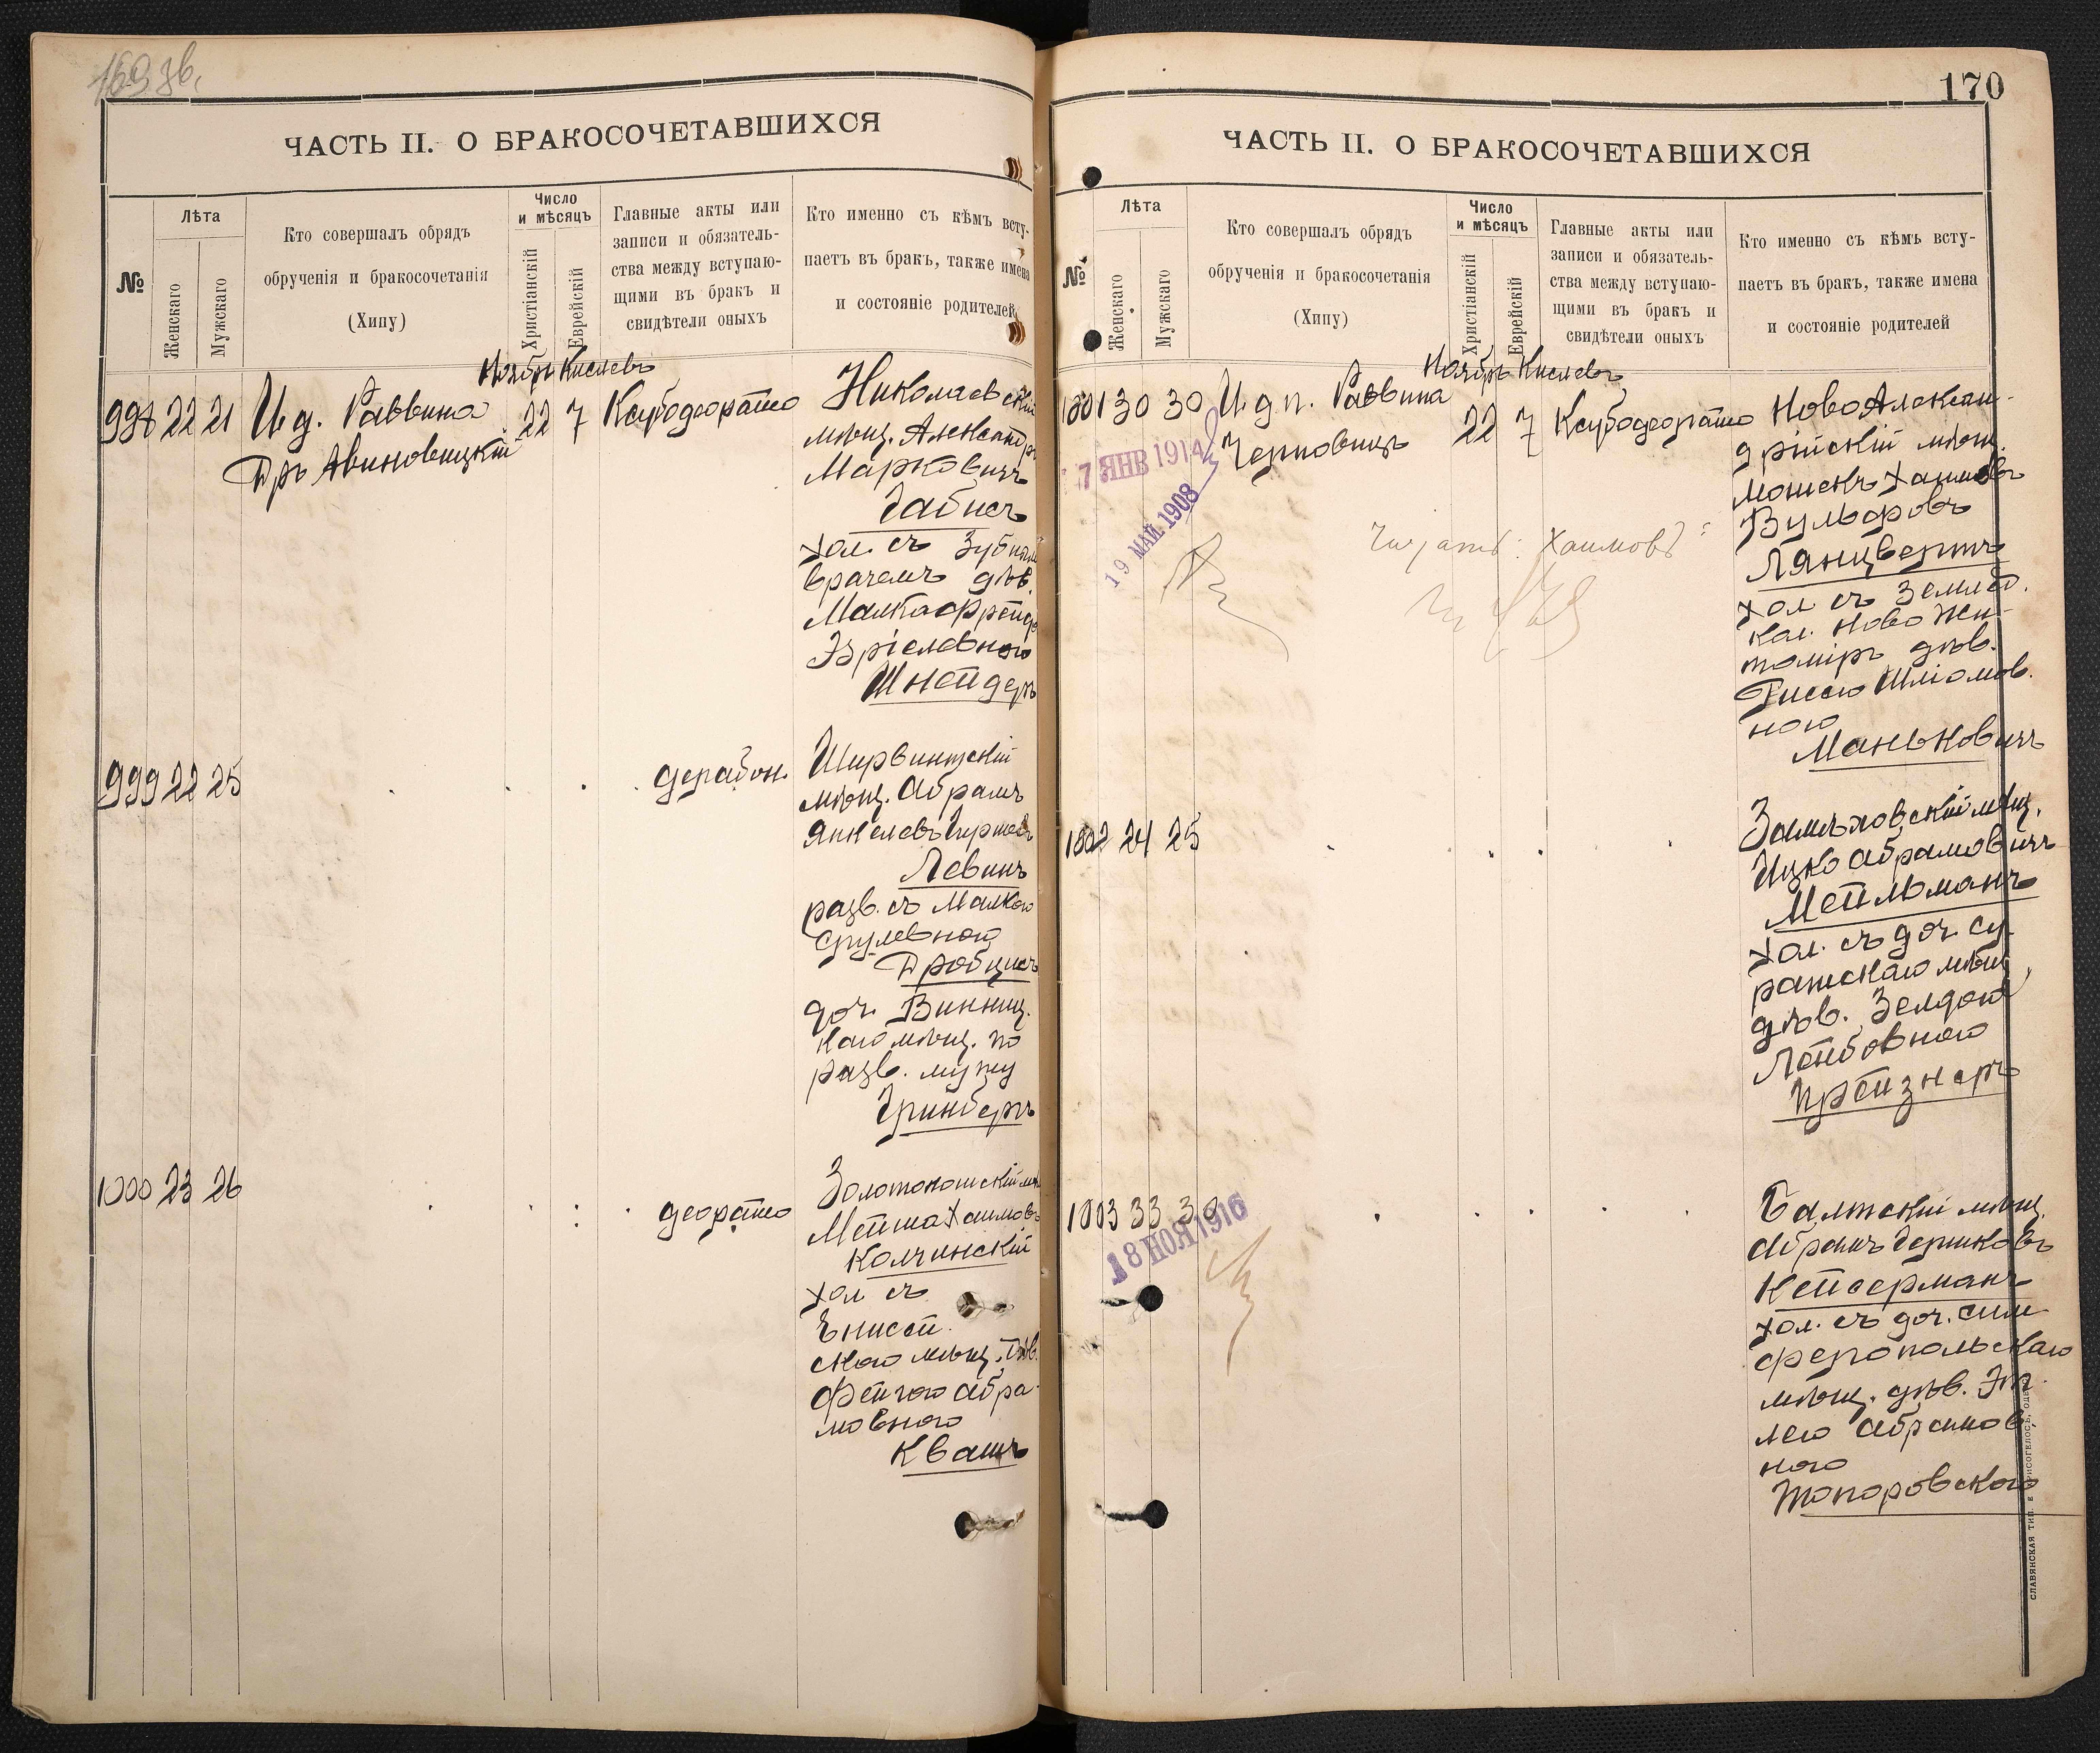 169 зв.
ЧАСТЬ II. О БРАКОСОЧЕТАВШИХСЯ
№
Лѣта
Женскаго
Мужскаго
Кто совершалъ обрядъ
обрученія и бракосочетанія
(Хипу)
Число
и мѣсяцъ
Христіанскій
Еврейскій
Главные акты или
записи и обязатель-
ства между вступаю-
щими въ бракъ и
свидѣтели оныхъ
Кто именно съ кѣмъ всту-
паетъ въ бракъ, также имена
и состояніе родителей
Ноябрь Кислевъ
998 22 21 И.д. Раввина 22 7 Ксубодеорайто
Др. Авиновицкій
Николаевскій
мѣщ. Александръ
Марковичъ
Габисъ
хол. съ Зубнымъ
врачемъ дѣв.
Малкасфрейде
Эзріелевною
Шнейдеръ
999 22 25
дерабон.
Ширвинтскій
мѣщ. Абрамъ
Янкелевъ Гиршевъ
Левинъ
разв. съ Малкою
Срулевною
Дробцисъ
доч. Винниц.
каго мѣщ. по
разв. мужу
Гринбергъ
1000 23 26
деорайто
Золотоношскій мѣ
Мейша Хаимовъ
Колчинскій
хол съ
Енисей
скаго мѣщ. дѣв.
Фейгою Абра-
мовною
Квашъ
170
ЧАСТЬ II. О БРАКОСОЧЕТАВШИХСЯ
№
Лѣта
Женскаго
Мужскаго
Кто совершалъ обрядъ
обрученія и бракосочетанія
(Хипу)
Число
и мѣсяцъ
Христіанскій
Еврейскій
Главные акты или
записи и обязатель-
ства между вступаю-
щими въ бракъ и
свидѣтели оныхъ
Кто именно съ кѣмъ всту-
паетъ въ бракъ, также имена
и состояніе родителей
Ноябрь Кислевъ
1001 30 30 И.д.п. Раввина 22 7 Ксубодеорайто
Черновицъ
7 ЯНВ 1914
19 МАЙ 1908
Читать: Хаимовъ
НовоАлексан-
дрійскій мѣщ.
Мошекъ Хаимовъ
Вульфовъ
Лянцвертъ
хол съ Землед.
кол. Ново Жи-
томіръ дѣв.
Гиссею Шліомов.
ною
Маньковичъ
1002 24 25
Замѣховскій мѣщ.
Ицко Абрамовичъ
Мейльманъ
хол. съ доч. су-
ражскаго мѣщ
дѣв. Зелдою
Лейбовною
Прейзнеръ
1003 33 30
18 НОЯ 1916
Балтскій мѣщ.
Абрамъ Гершковъ
Кейсерманъ
хол. съ доч. Сим
феропольскаго
мѣщ. дѣв. Эт-
лею Абрамов
ною
Топоровскою
СЛАВЯНСКАЯ ТИП. Е. ХРИСОГЕЛОСЪ, ОДЕССА